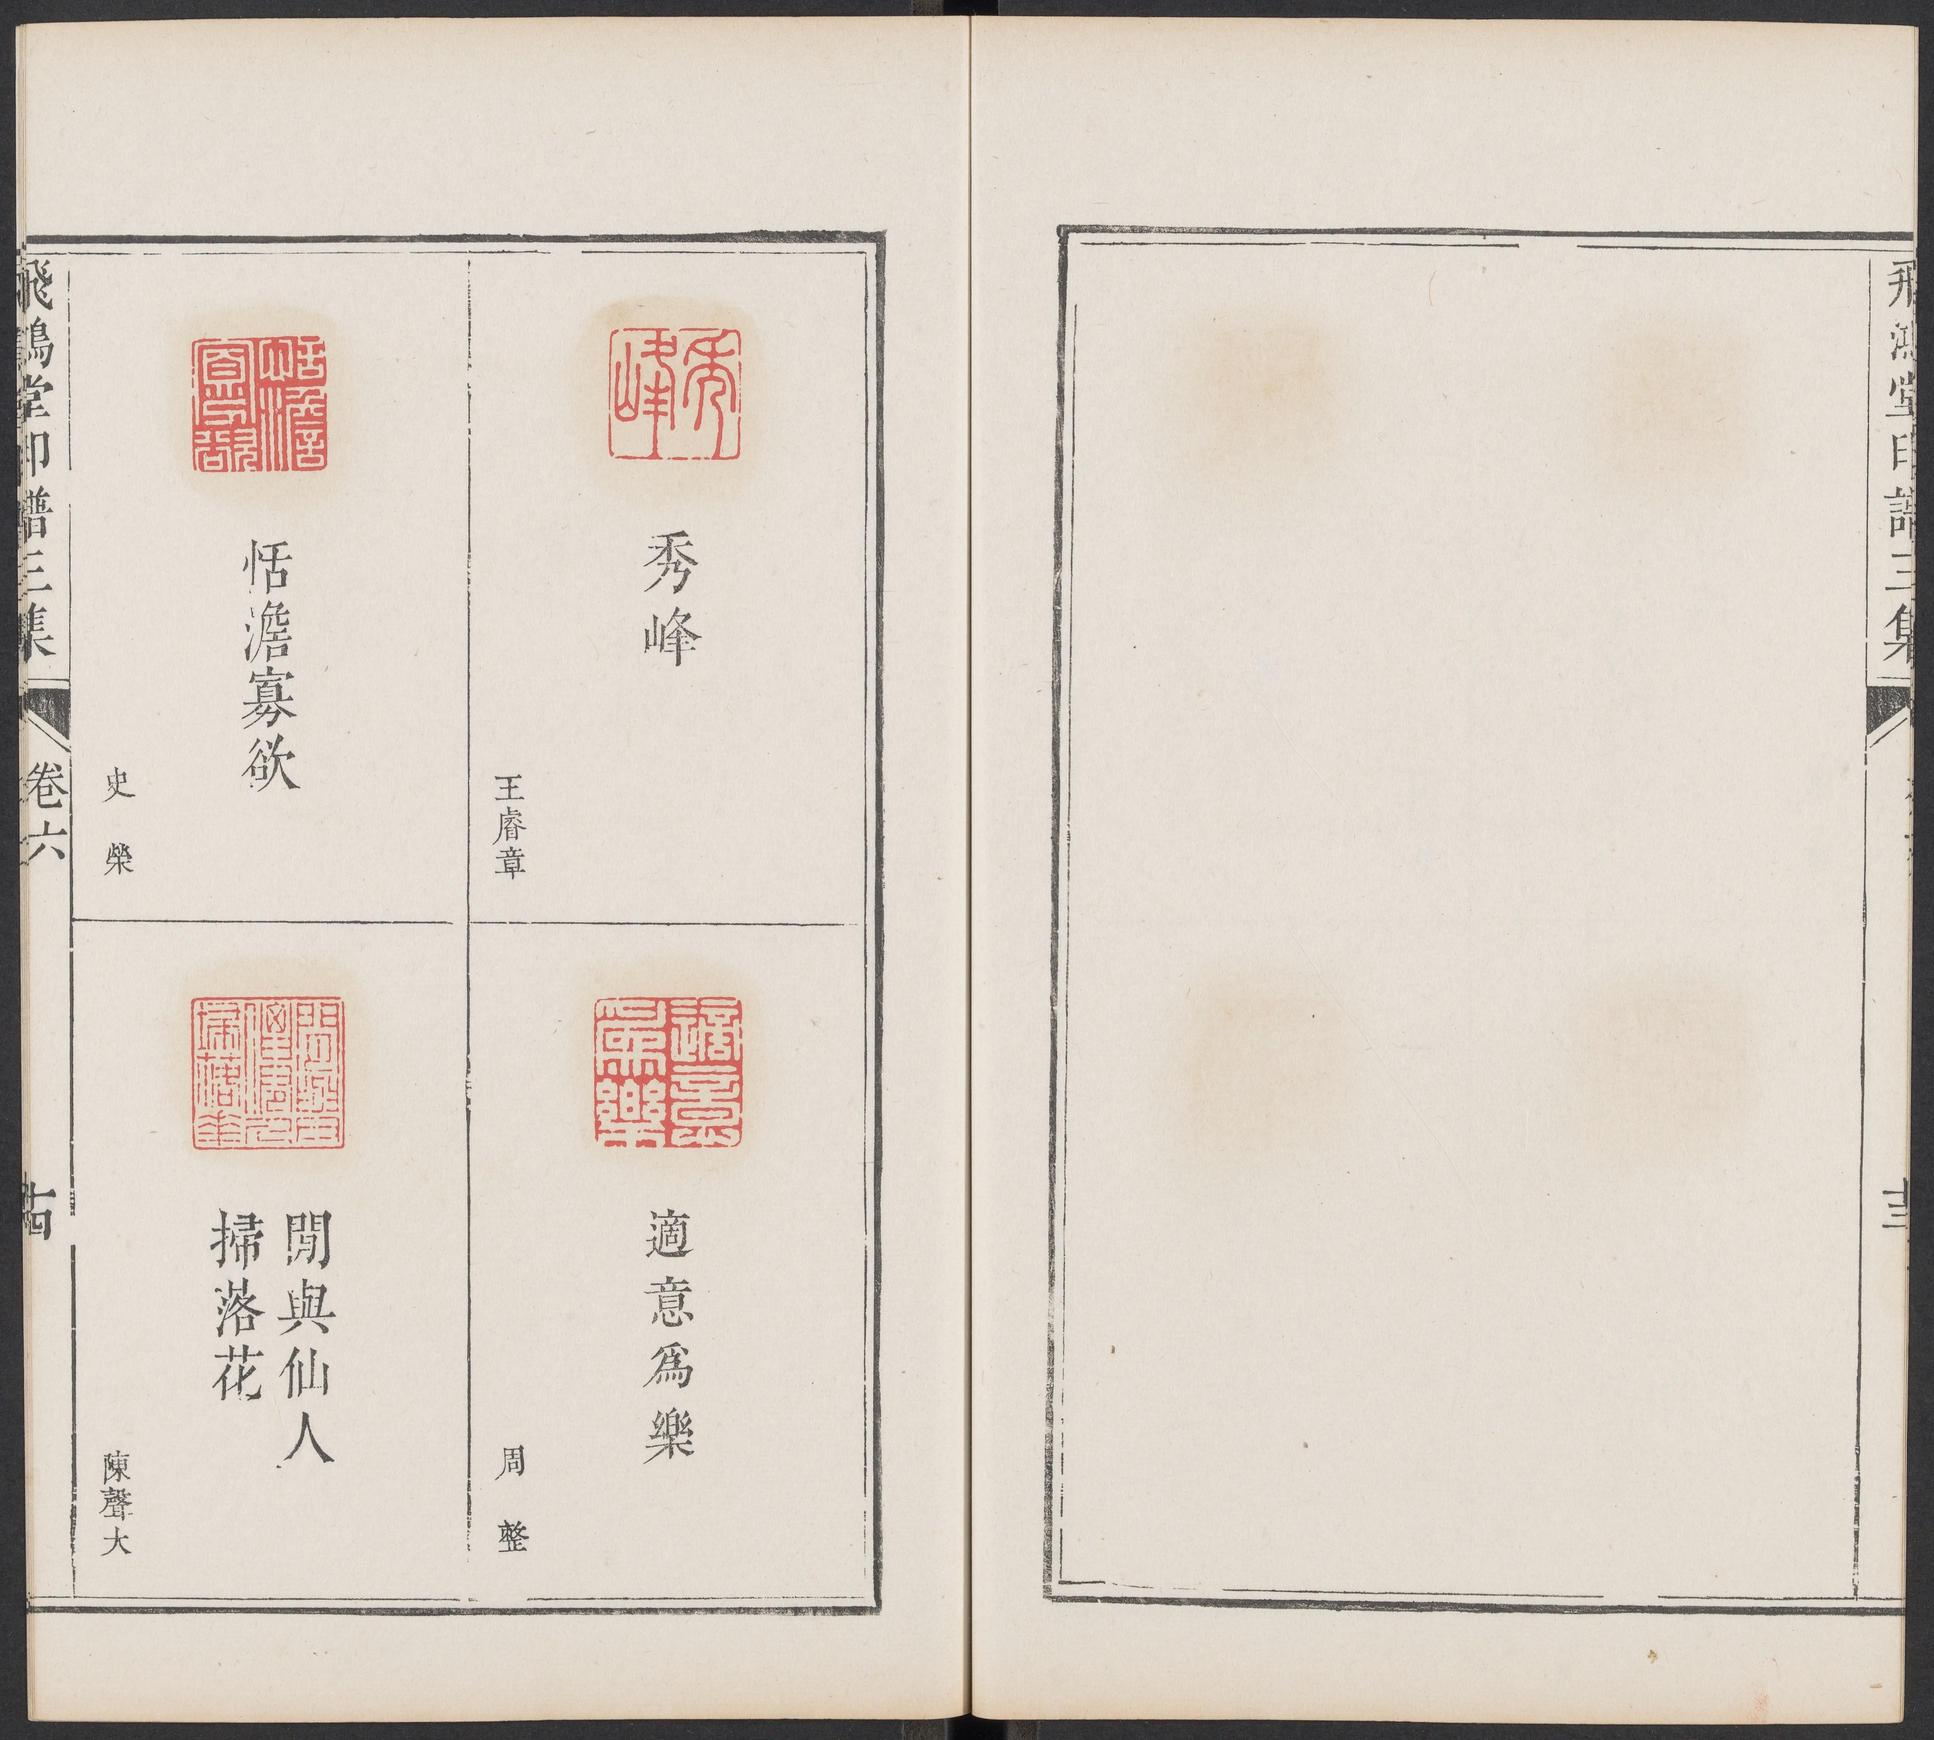 飛鴻堂印譜三集
秀峰
王睿章
適意爲樂
周整
恬澹寡欲
史榮
閒與仙人
掃落花
陳聲大
飛鴻堂印譜三集
卷六
十四